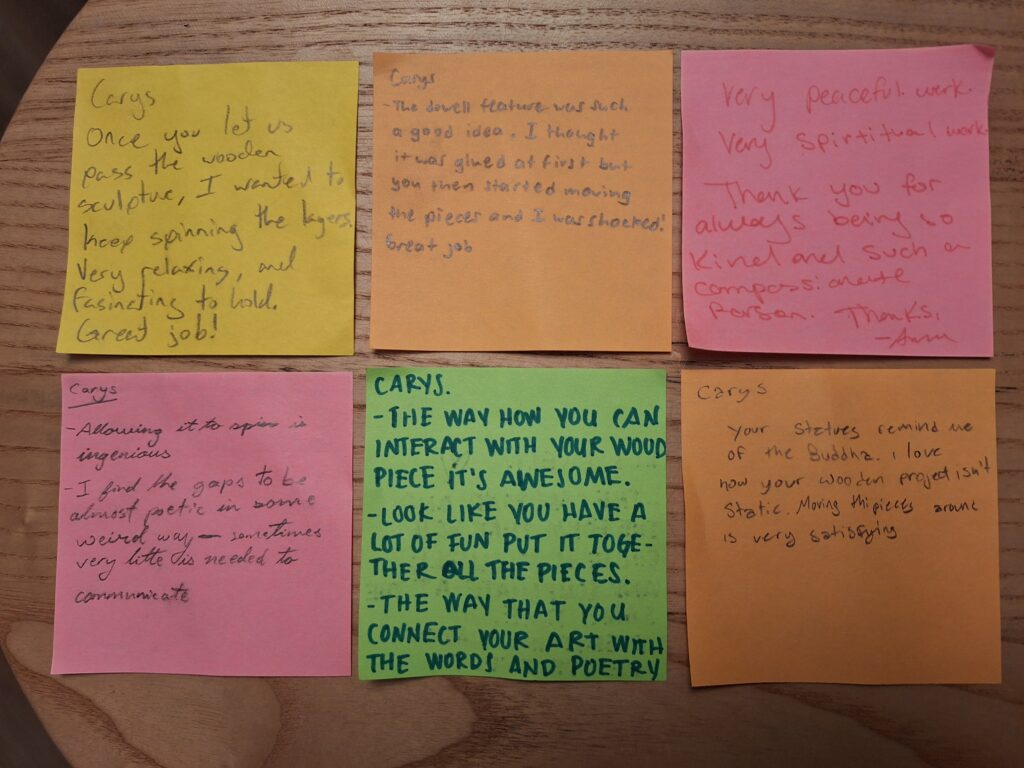 Carys
Once you let us
pass the wooden
sculpture, I wanted to
keep spinning the layers.
Very relaxing, and
fasinating to hold.
Great job!
Carys
- The dowell feature was such
a good idea. I thought
it was glued at first but
you then started moving
the pieces and I was shocked!
Great job
Very peaceful work.
Very spirtitual work.
Thank you for
always being so
kind and such a
compassionate
person. Thanks,
Carys
- Allowing it to spin is
ingenious
- I find the gaps to be
almost poetic in some
weird way — sometimes
very litte is needed to
communicate
CARYS.
- THE WAY HOW YOU CAN
INTERACT WITH YOUR WOOD
PIECE IT'S AWESOME.
- LOOK LIKE YOU HAVE A
LOT OF FUN PUT IT TOGE-
THER ALL THE PIECES.
- THE WAY THAT YOU
CONNECT YOUR ART WITH
THE WORDS AND POETRY
Carys
Your statues remind me
of the Buddha. I love
how your wooden project isn't
static. Moving pieces around
is very satisfying